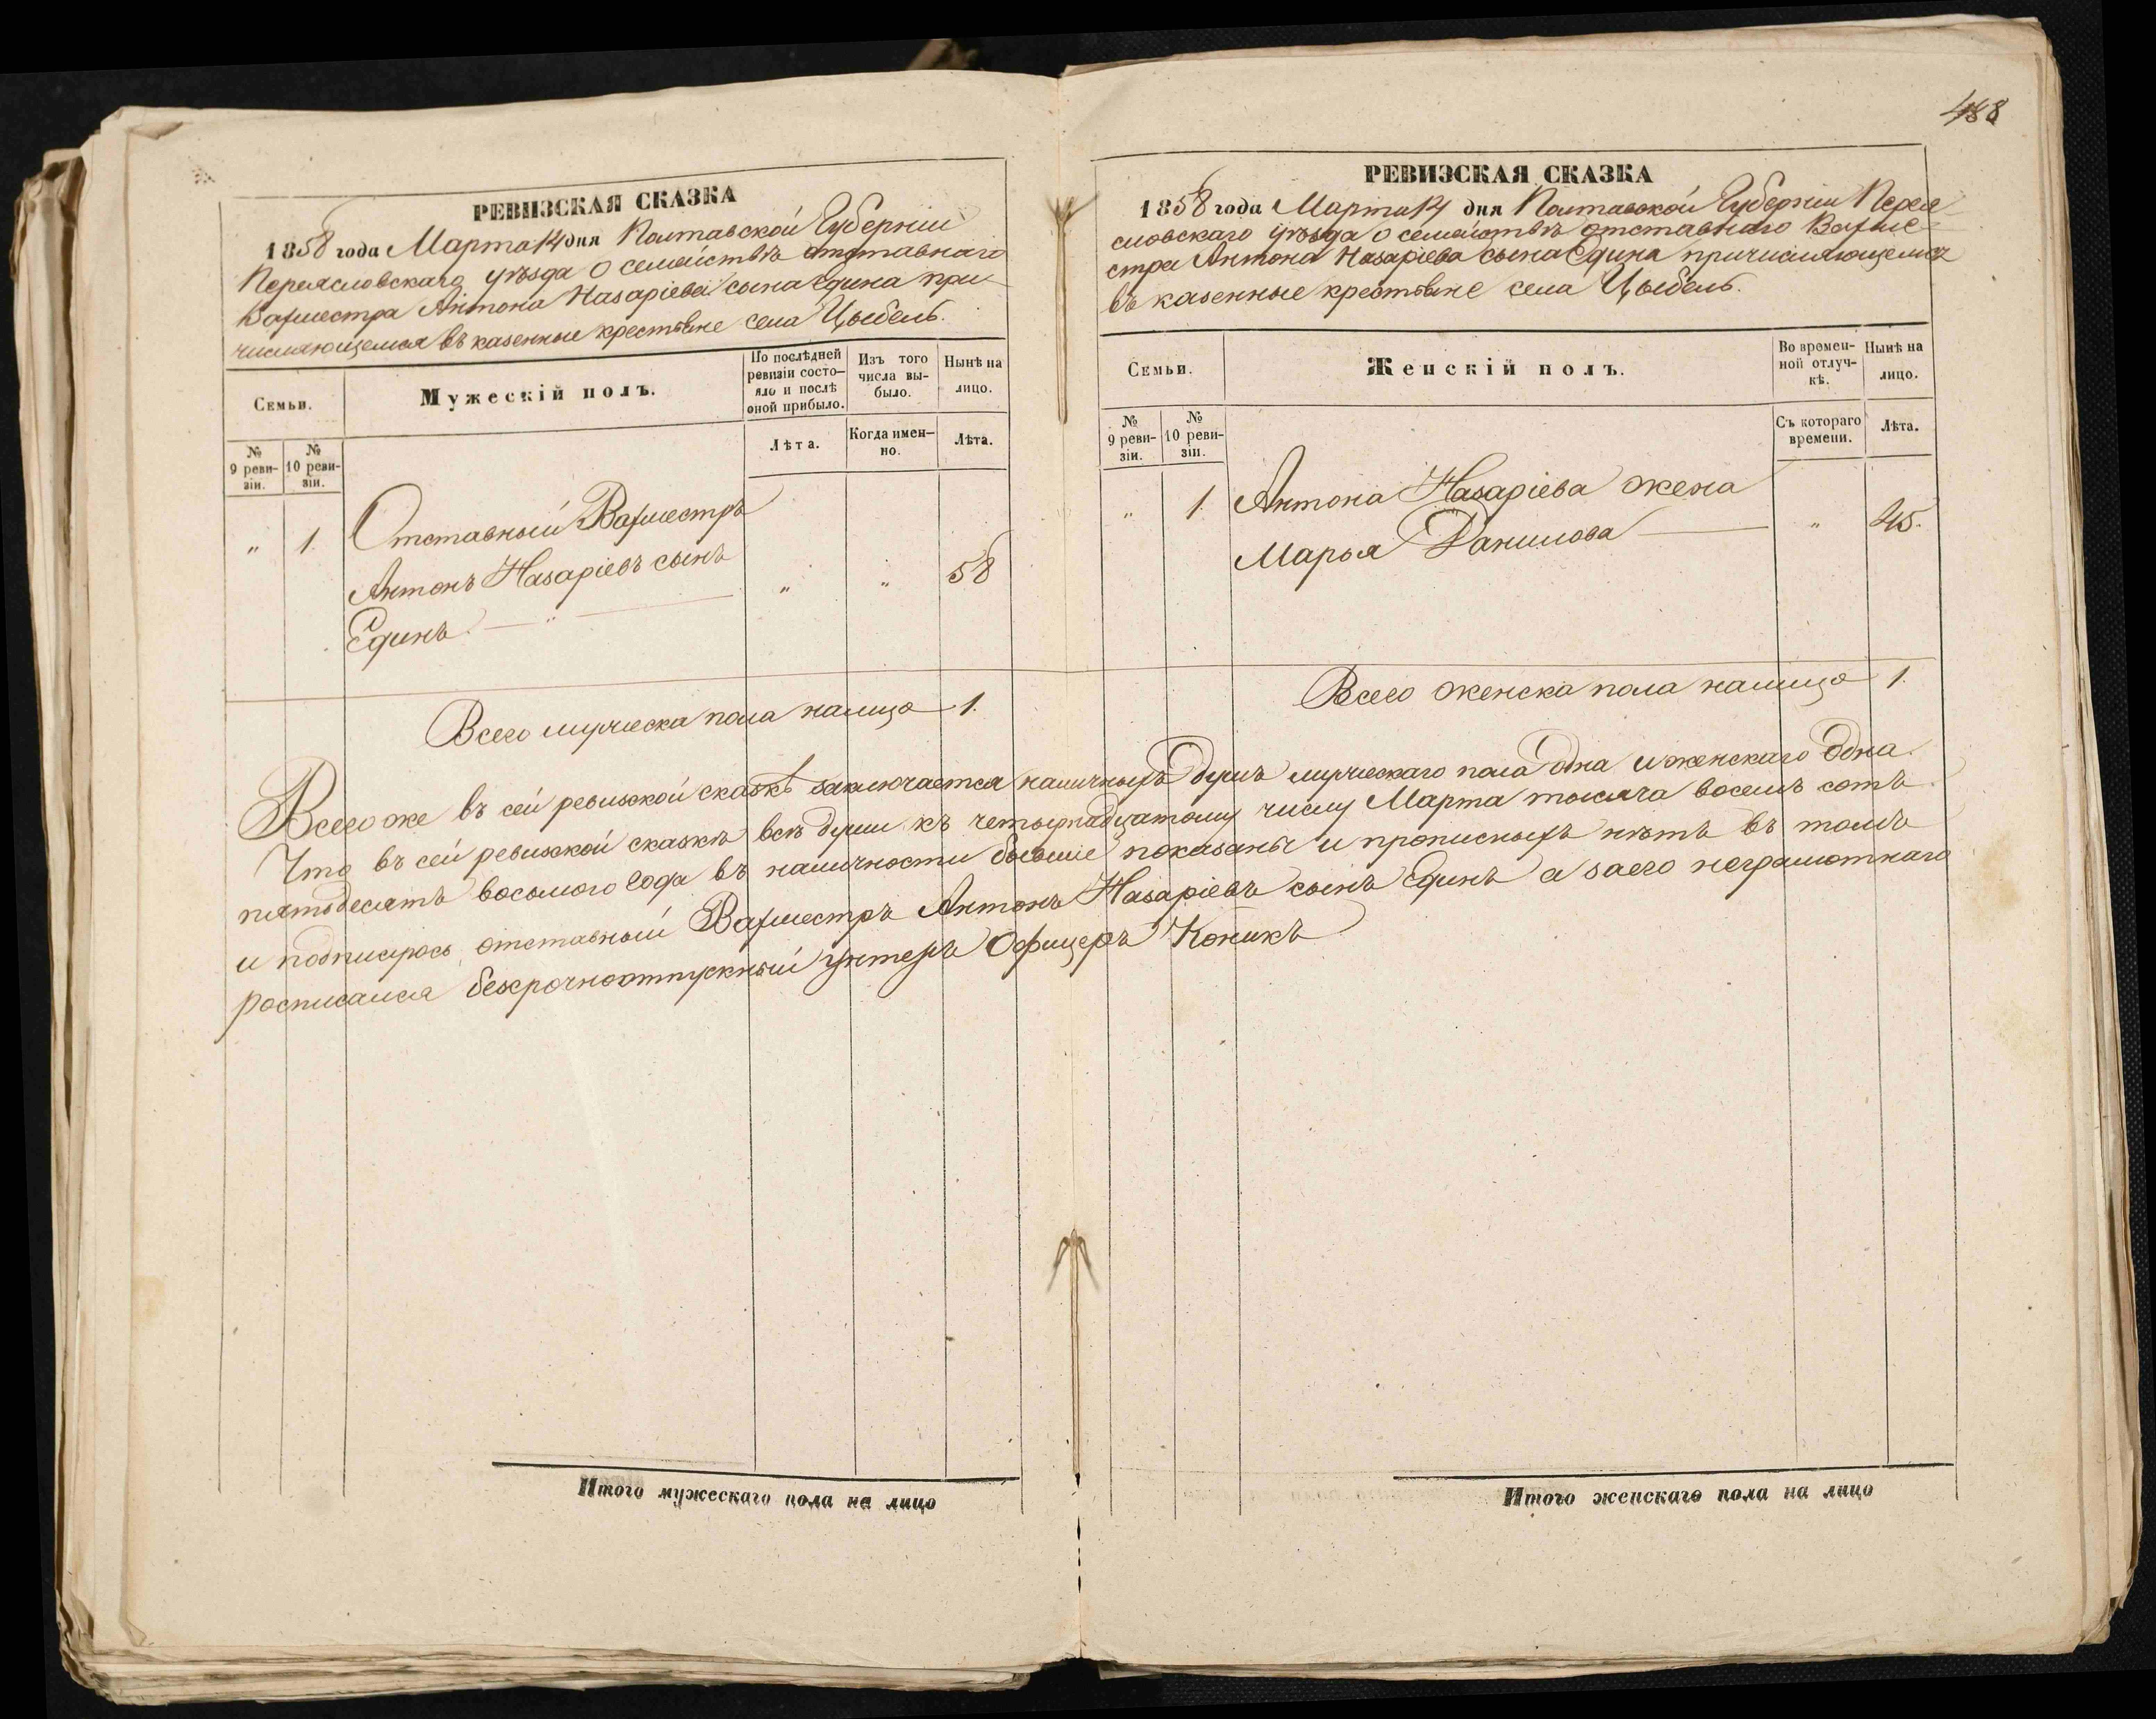 488
РЕВИЗСКАЯ СКАЗКА
1858 года Марта 14 дня Полтавской Губерніи
Переясловскаго уѣзда о семействѣ отставнаго
Вахместра Антона Назаріева сына Едина при-
числяющемся въ казенные крестьяне села Цыбель.
Семьи.
Мужескій полъ.
По послѣдней ревизіи состо-яло и послѣ оной прибыло.
Изъ того числа вы-было.
Нынѣ на лицо.
№ 9 реви-зіи.
№ 10 реви-зіи.
Лѣта.
Когда имен-но.
Лѣта.
" 1. Отставный Вахместръ
Антонъ Назаріевъ сынъ " " 58
Единъ. — " —
Всего мужеска пола налицо 1.
РЕВИЗСКАЯ СКАЗКА
1858 года Марта 14 дня Полтавской Губерніи Перея-
словскаго уѣзда о семействѣ отставнаго Вахме-
стра Антона Назаріева сына Едина причисляющемся
въ казенные крестьяне села Цыбель.
Семьи.
Женскій полъ.
Во времен-ной отлуч-кѣ.
Нынѣ на лицо.
№ 9 реви-зіи.
№ 10 реви-зіи.
Съ котораго времени.
Лѣта.
" 1. Антона Назаріева жена
Марья Данилова — " 45.
Всего женска пола налицо 1.
Всего же въ сей ревизской сказкѣ заключается наличныхъ душъ мужескаго пола одна и женскаго одна.
Что въ сей ревизской сказкѣ всѣ души къ четырнадцатому числу Марта тысяча восемь сотъ
пятьдесятъ восьмого года въ наличности бывшіе показаны и прописныхъ нѣтъ въ томъ
и подписуюсь отставный Вахместръ Антонъ Назаріевъ сынъ Единъ а за его неграмотнаго
росписался безсрочноотпускный унтеръ Офицеръ Коникъ
Итого мужескаго пола на лицо
Итого женскаго пола на лицо